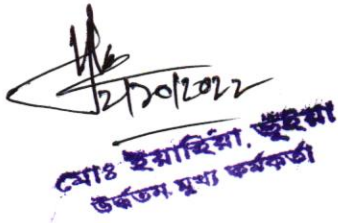 12/10/2022
মোঃ ইয়াহিয়া, ভূইয়া
উর্দ্ধতন মুখ্য কর্মকর্তা